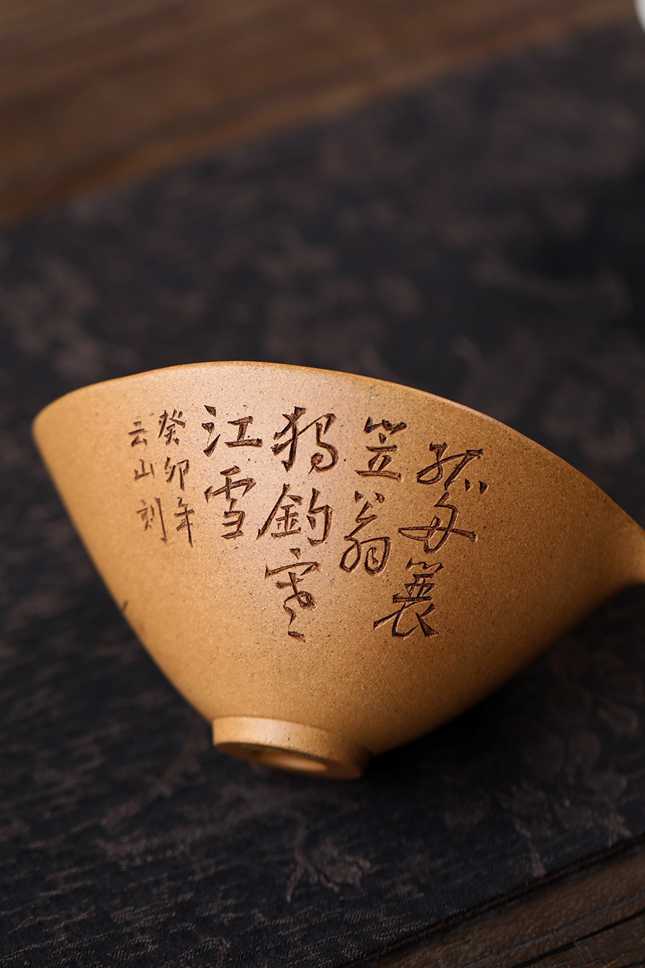 孤舟蓑
笠翁
独钓寒
江雪
癸卯年
云山刻